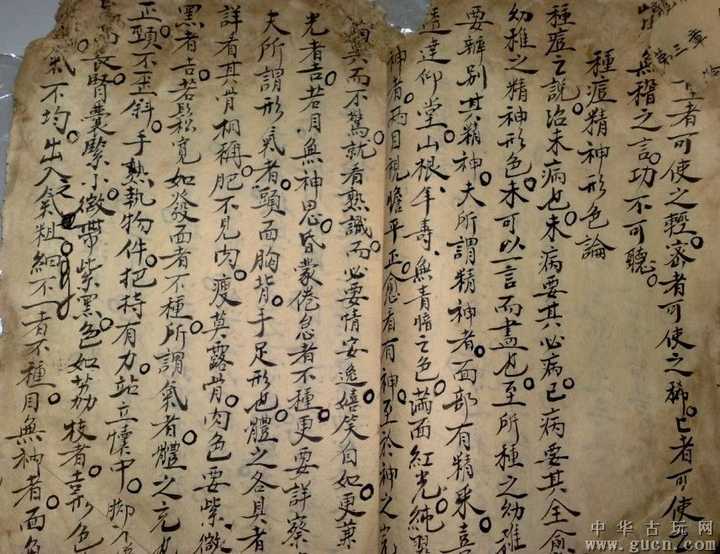 第三章
重者可使之輕。密者可使之稀。亡者可使
無稽之言。功不可聽。
種痘精神形色論
種痘之說治未病也。未病要其必病。已病要其全愈
幼稚之精神形色。未可以一言而盡也。至所種之幼稚
要辨別其精神。夫所謂精神者。面部有精采。喜
達仰堂。山根。年壽。無青暗之色。滿面紅光純
神者。两目視瞻平正。愈看有神。至於神之
異而不驚。就看熟識。而必要情安逸。嬉笑自如。更兼
光者吉。若目無神思。昏蒙倦怠者不種。更要詳察
夫所謂形氣者。頭面胸背。手足形也。體之各具者
詳看其骨相稱。肥不見肉。瘦莫露骨。肉色要紫微
黑者吉。若鬆寬如發面者不種。所謂氣者體之充也
正頸不歪斜。手熟執物件。把持有力。站立慣中。脚不
長。腎囊緊小。微帶紫黑色如荔枝者。形色
氣不均。出入氣粗細不一者不種。目無神者。面色
中华古玩网
www.gucn.com